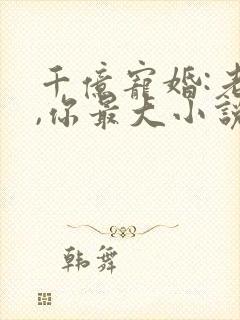 千億寵婚:老
,你最大小說
韩舞